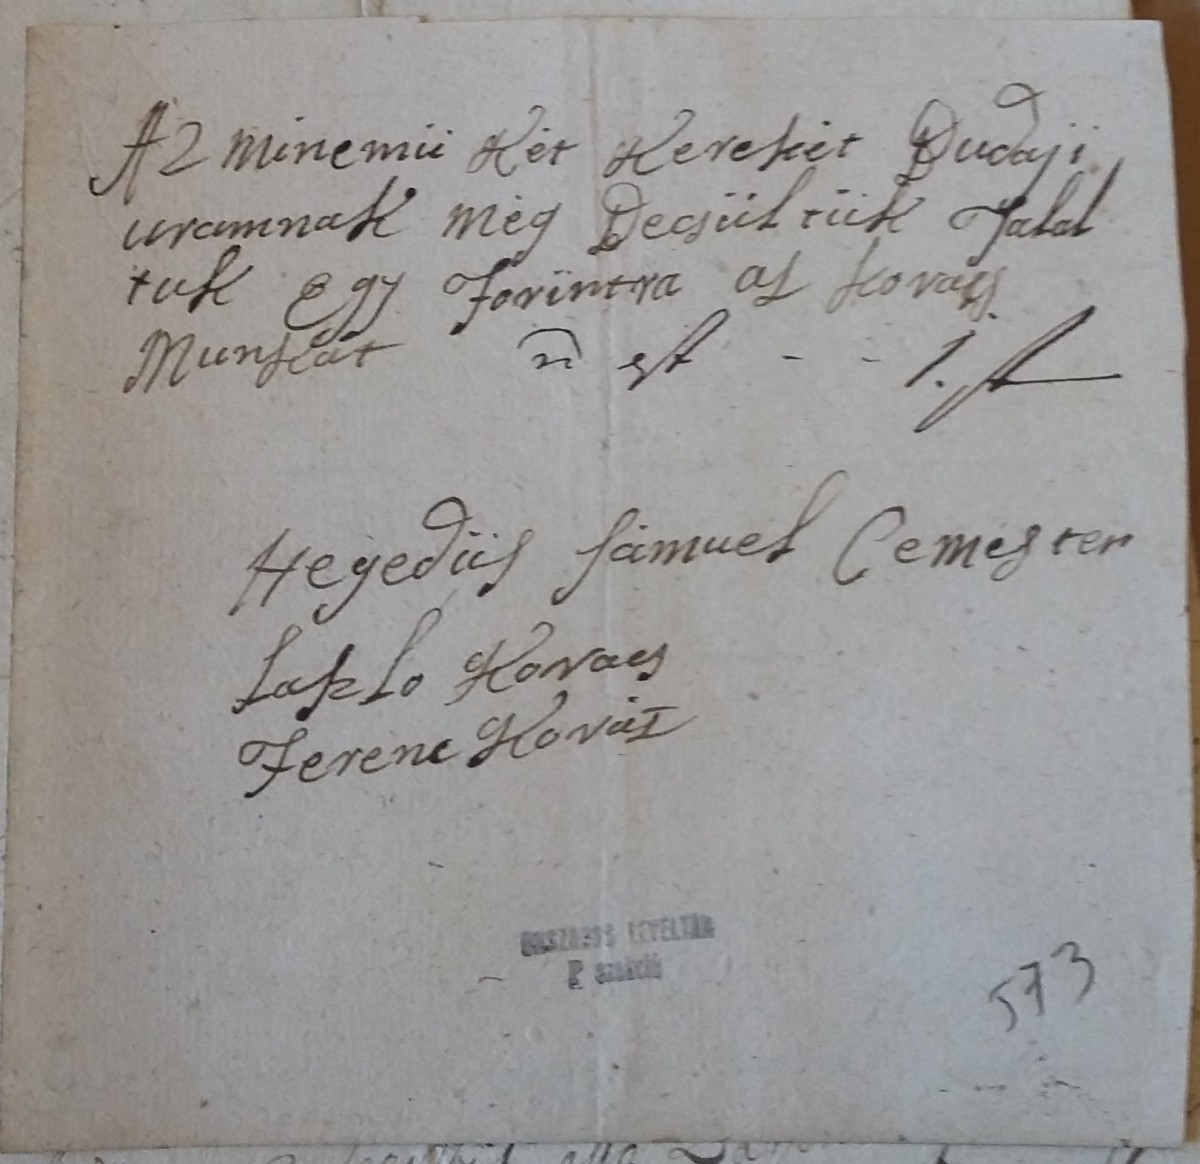 Az minemü Két Kerekét Budaji
uramnak még Becsültük Talal
tuk Egy Forintra as kovacs
Munkát id est - - 1. ft
Hegedüs Sámuel Cemester
Laszlo Kovacs
Ferenc Kovát
ORSZÁGOS LEVÉLTÁR
P szekció
573